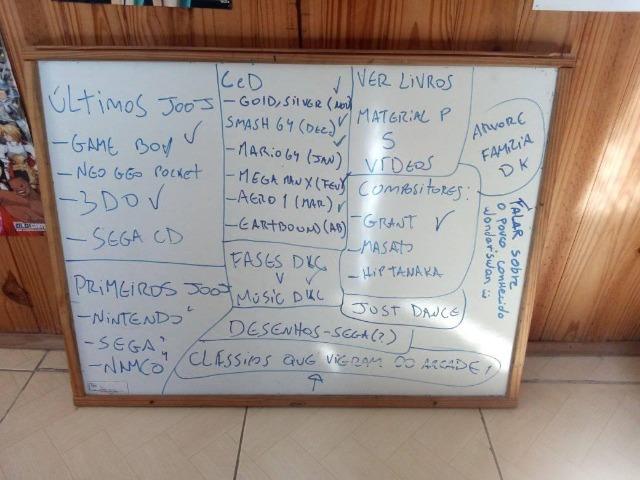 ÚLTIMOS JOGOS
- GAME BOY ✓
- NEO GEO POCKET
- 3DO ✓
- SEGA CD
PRIMEIROS JOGOS
- NINTENDO
- SEGA
- NAMCO
CeD ✓
- GOLD, SILVER (NOV)
SMASH 64 (DEZ) ✓
- MARIO 64 (JAN) ✓
- MEGA MAN X (FEV) ✓
- AERO 1 (MAR) ✓
- EARTHBOUND (AB)
FASES DKC
MUSIC DKC
VER LIVROS
MATERIAL P
5
VÍDEOS
COMPOSITORES:
- GRANT ✓
- MASATO
- HIP TANAKA
JUST DANCE
DESENHOS - SEGA (?)
CLÁSSICOS QUE VIERAM DO ARCADE!
ÁRVORE
FAMÍLIA
DK
FALAR sobre
o pouco conhecido
Wonderswan :)